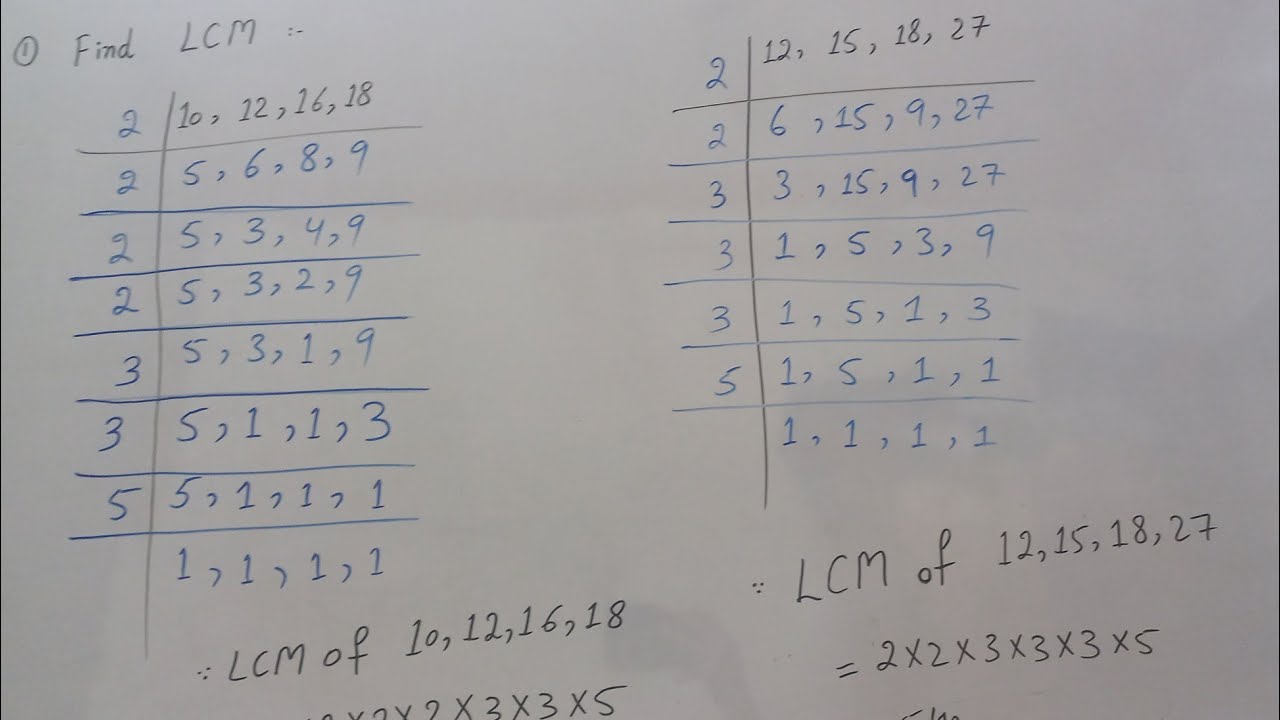 ① Find LCM :-
2 | 10, 12, 16, 18
2 | 5, 6, 8, 9
2 | 5, 3, 4, 9
2 | 5, 3, 2, 9
3 | 5, 3, 1, 9
3 | 5, 1, 1, 3
5 | 5, 1, 1, 1
1, 1, 1, 1
∵ LCM of 10, 12, 16, 18
×2×2×3×3×5
2 | 12, 15, 18, 27
2 | 6, 15, 9, 27
3 | 3, 15, 9, 27
3 | 1, 5, 3, 9
3 | 1, 5, 1, 3
5 | 1, 5, 1, 1
1, 1, 1, 1
∵ LCM of 12, 15, 18, 27
= 2×2×3×3×3×5